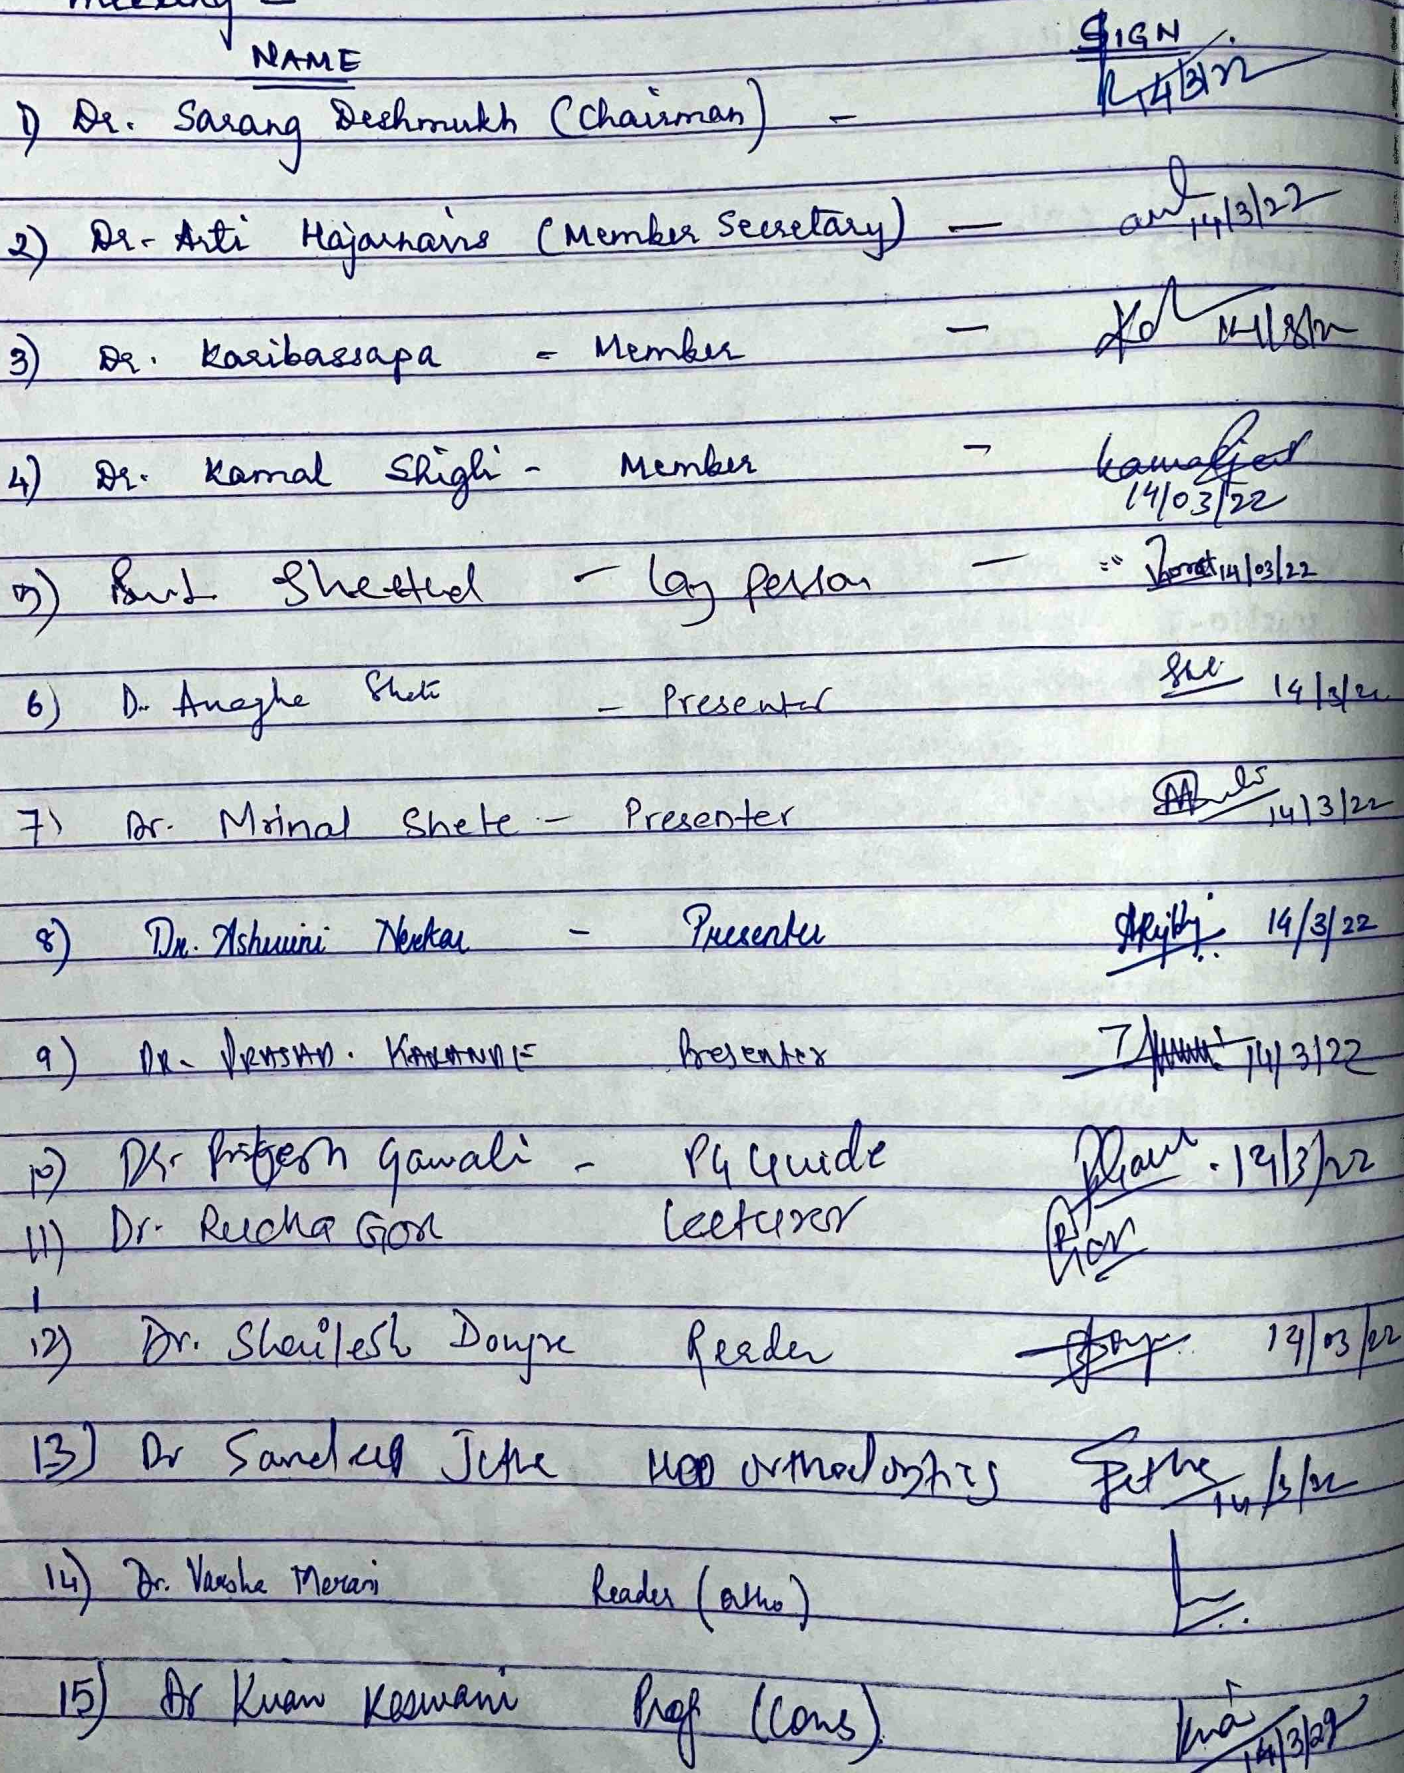 meeting -
NAME SIGN
1) Dr. Sarang Deshmukh (Chairman) - 14/3/22
2) Dr. Arti Hajarnavis (Member Secretary) - 14/3/22
3) Dr. Karibassapa - Member -
4) Dr. Kamal Shigli - Member -
14/03/22
5) - lay person - 14/03/22
6) Dr. Anagha Shete - Presenter 14/3/22
7) Dr. Mrinal Shete - Presenter 14/3/22
8) Dr. Ashwini Nerkar - Presenter 14/3/22
9) DR. PRASAD. KARANDE Presenter 14/3/22
10) Dr. Pritesh Gawali - PG Guide 14/3/22
11) Dr. Rucha Gor Lecturer
12) Dr. Shailesh Dongre Reader 14/03/22
13) Dr Sandeep Jethe HOD Orthodontics 14/3/22
14) Dr. Varsha Merani Reader (ortho)
15) Dr Kiran Keswani Prof (Cons)